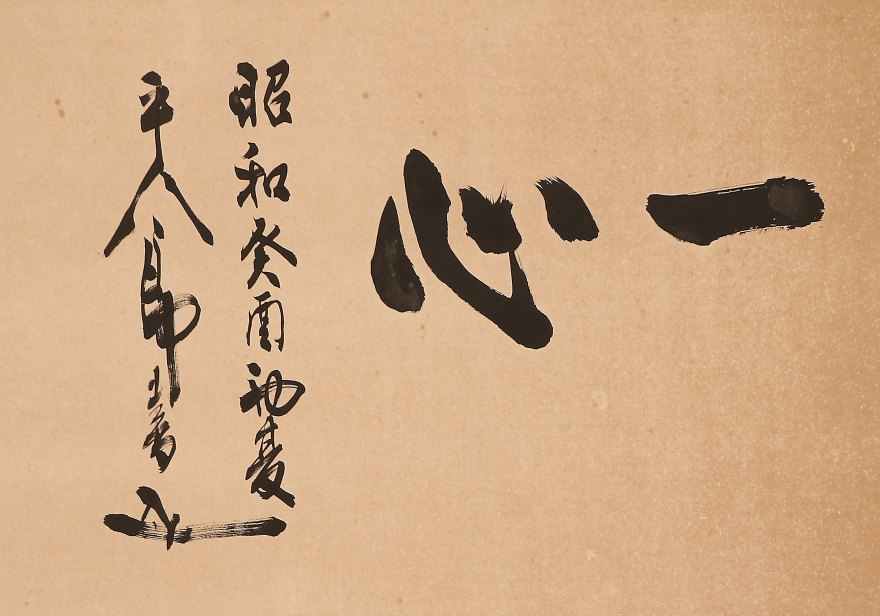 一心
昭和癸酉初夏
平八郎書